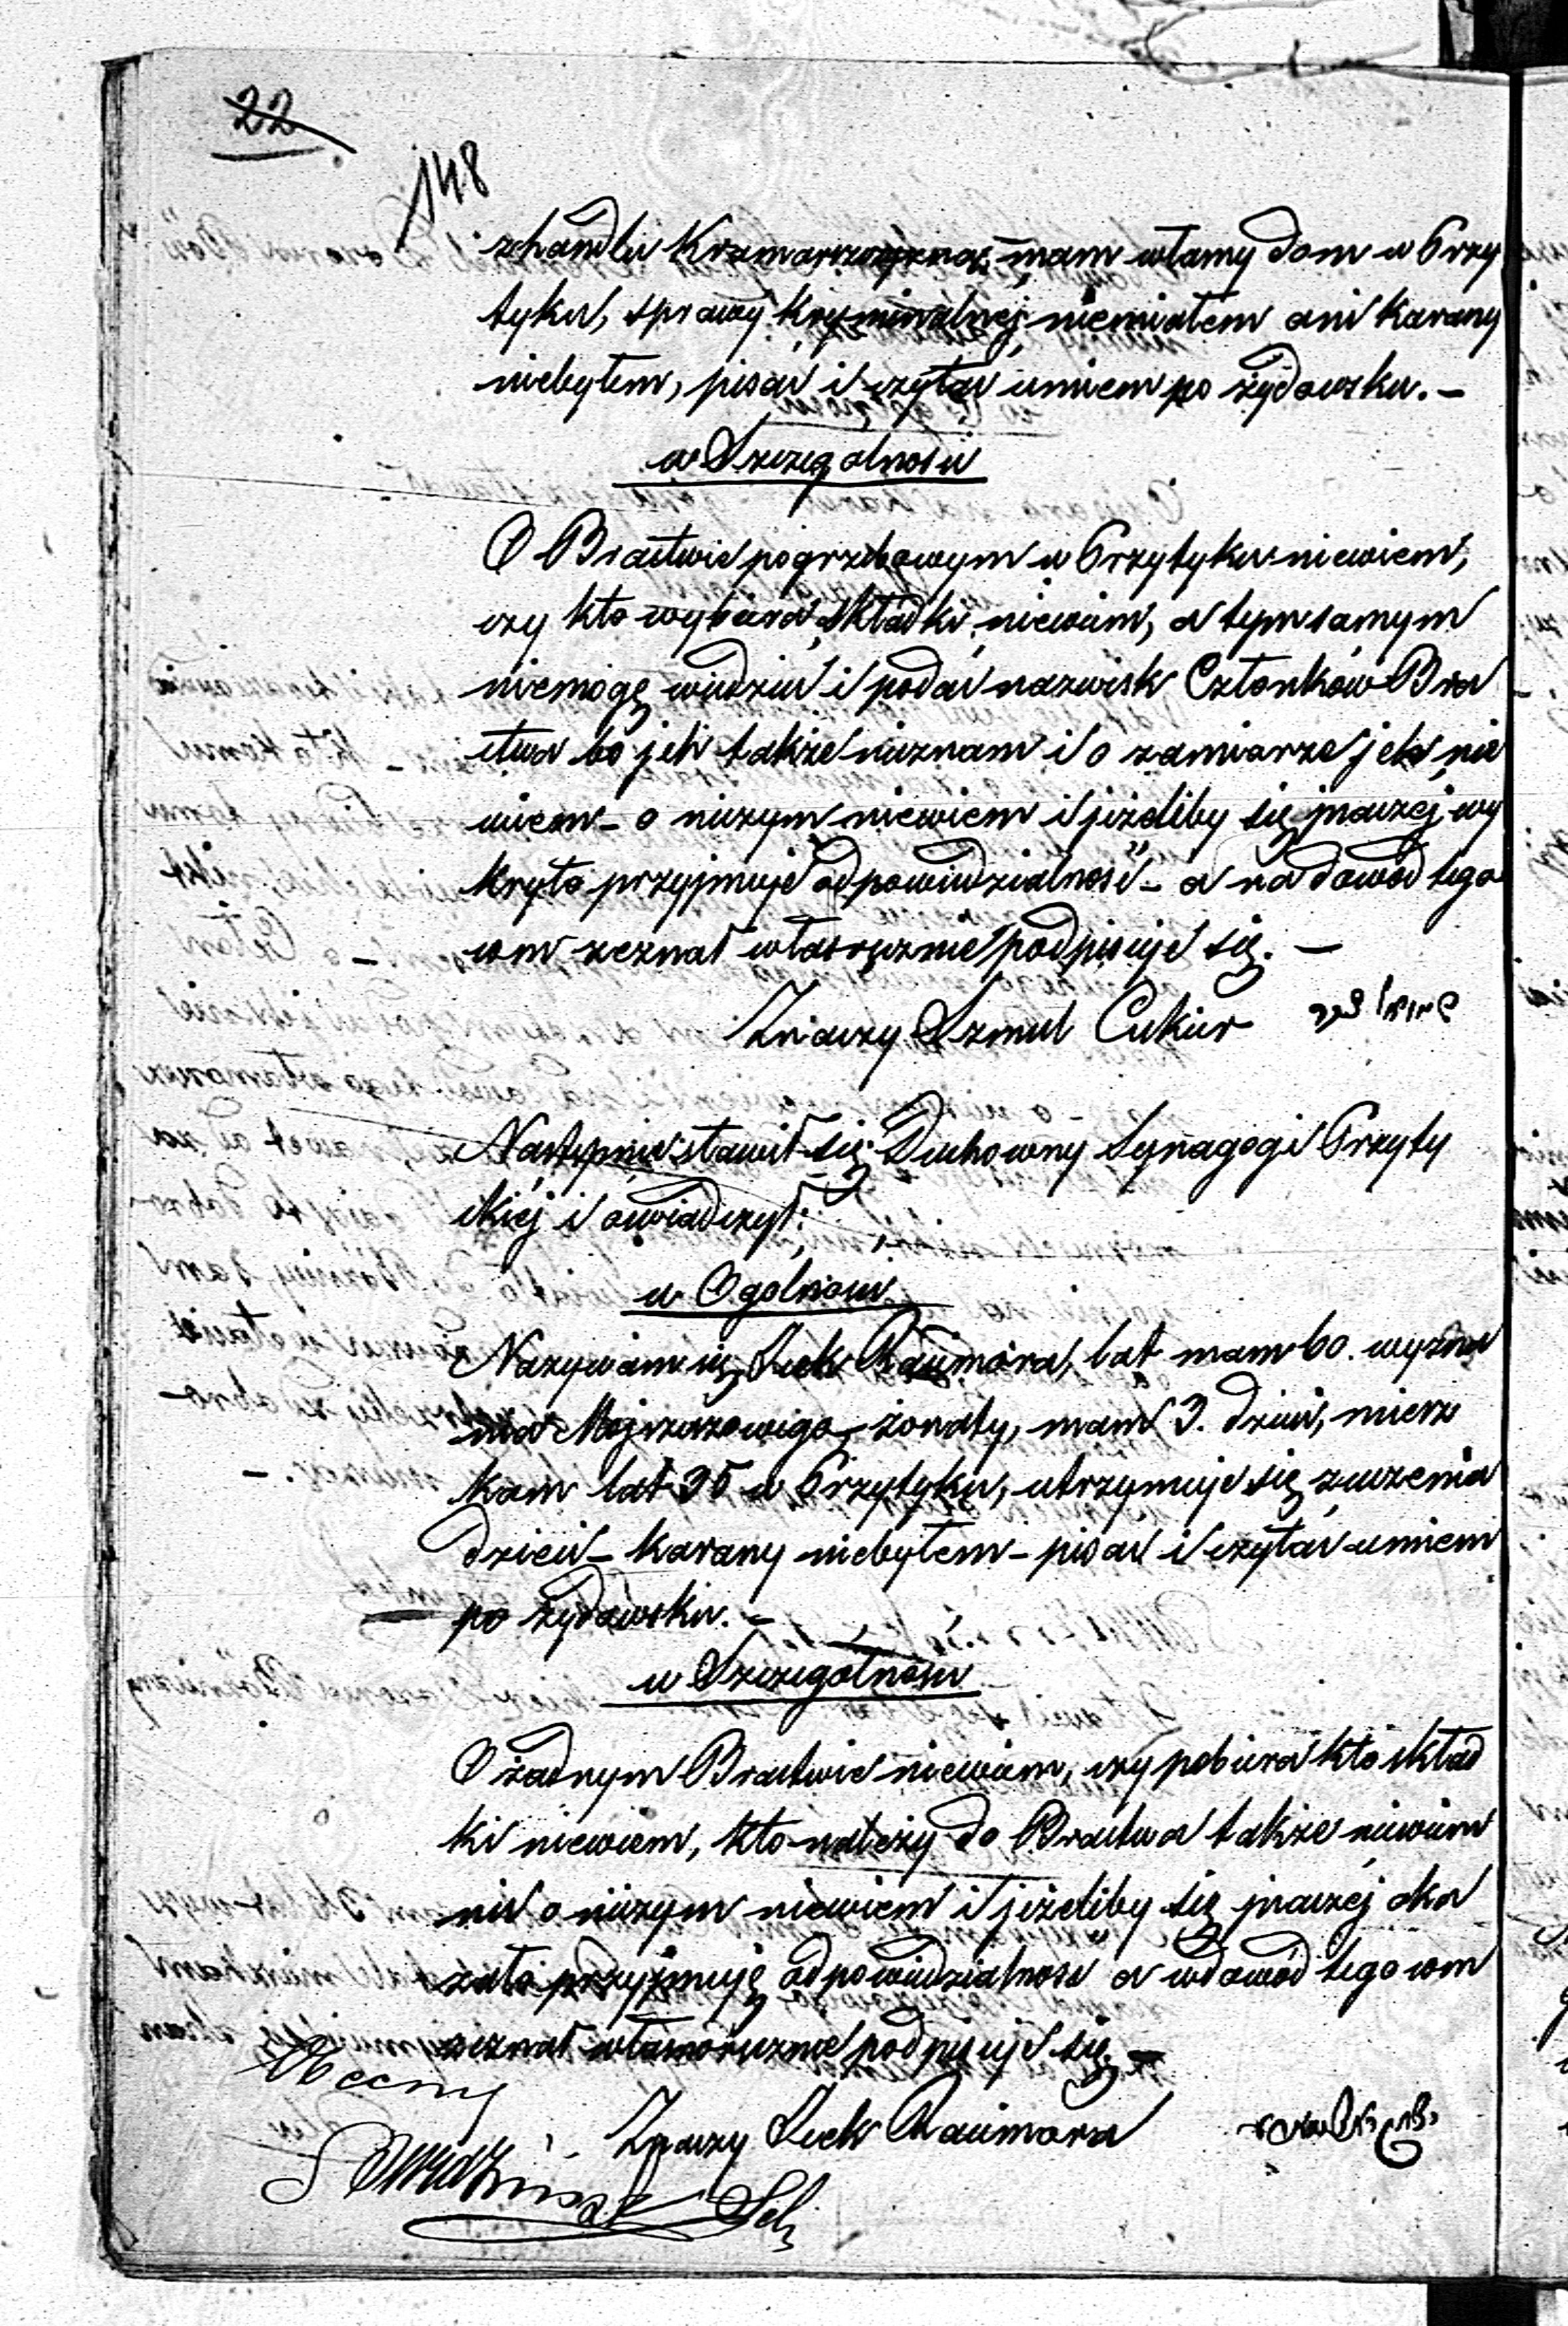 22
148
z handlu Kramarszczyzną, mam własny dom w Przy
tyku, sprawy kryminalnej niemiałem ani karany
niebyłem, pisać i czytać umiem po żydowsku. –
w Szczególności
O Bractwie pogrzebowym w Przytyku niewiem,
czy kto wybiera składki niewiem, a tym samym
niemogę wiedzieć i podać nazwisk Członków Bra
ctwa bo jch także nieznam i o zamiarze jch nie
wiem – o niczym niewiem i jeżeliby się jnaczej wy
kryło przyjmuje odpowiedzialność – a na dowód tego
com zeznał własręcznie podpisuje się. –
Znaczy Szmul Cukier שמואל צוקר
Następnie stawił się Duchowny Synagogi Przyty
ckiej i oświadczył;
w Ogólności
Nazywam się Icek Raimora, lat mam 60. wyzna
nia Mojżeszowego, żonaty, mam 3. dzieci, miesz
kam lat 35 w Przytyku, utrzymuje się z uczenia
dzieci – karany niebyłem – pisać i czytać umiem
po żydowsku. –
w Szczególności
O żadnym Bractwie niewiem, czy pobiera kto skład
ki niewiem, kto należy do Bractwa także niewiem
nic o niczym niewiem i jeżeliby się jnaczej oka
zało przyjmuję odpowiedzialność a w dowód tego com
zeznał własnoręcznie podpisuje się –
Obecny
Znaczy Icek Raimora